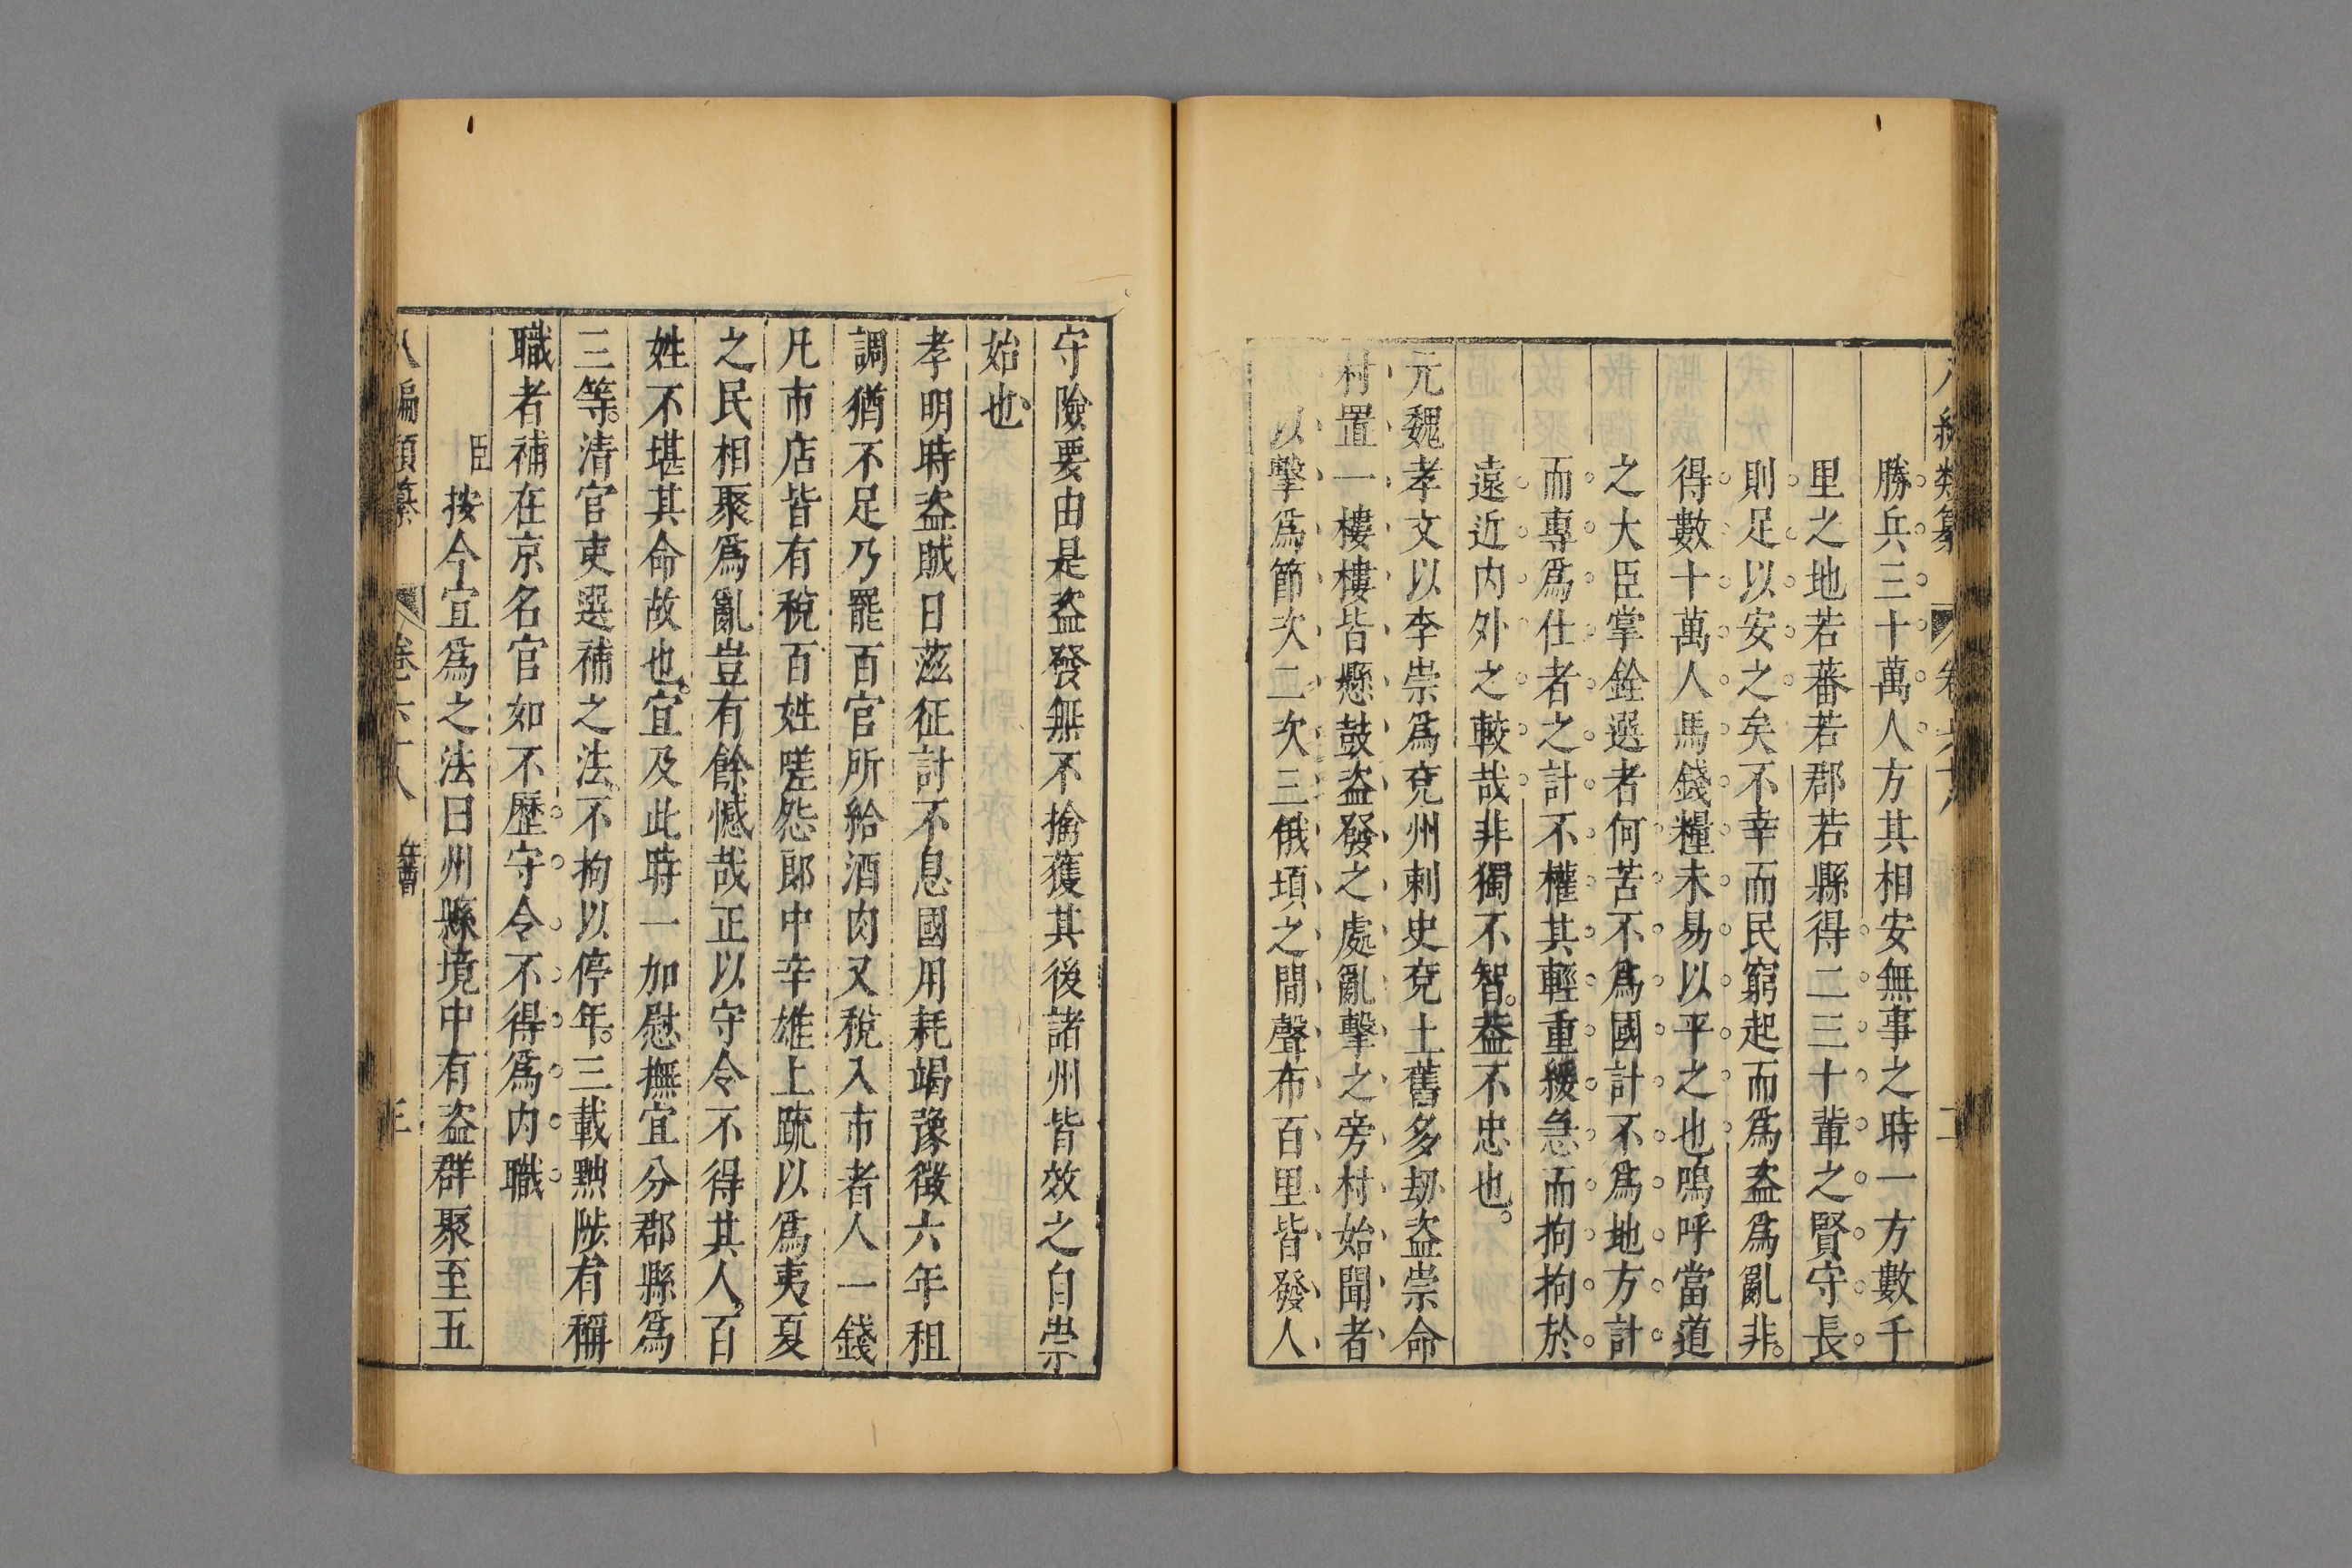 勝兵三十萬人方其相安無事之時一方數千
里之地若蕃若郡若縣得二三十輩之賢守長
則足以安之矣不幸而民窮起而爲盗爲亂非
得數十萬人馬錢糧未易以平之也嗚呼當道
之大臣掌銓選者何苦不爲國計不爲地方計
而專爲仕者之計不權其輕重緩急而拘拘於
遠近内外之較哉非獨不智葢不忠也
元魏孝文以李崇爲兗州刺史兗土舊多刼盗崇命
村置一樓樓皆懸鼓盗發之處亂擊之旁村始聞者
以擊爲節次二次三俄頃之間聲布百里皆發人
守險要由是盗發無不擒獲其後諸州皆效之自崇
始也
孝明時盗賊日滋征討不息國用耗竭豫徵六年租
調猶不足乃罷百官所給酒肉又稅入市者人一錢
凡市店皆有稅百姓嗟怨郎中辛雄上疏以爲夷夏
之民相聚爲亂豈有餘憾哉正以守令不得其人百
姓不堪其命故也宜及此時一加慰撫宜分郡縣爲
三等清官吏選補之法不拘以停年三載黜陟有稱
職者補在京名官如不歷守令不得爲内職
臣按今宜爲之法曰州縣境中有盗群聚至五
八編類纂 卷六十八